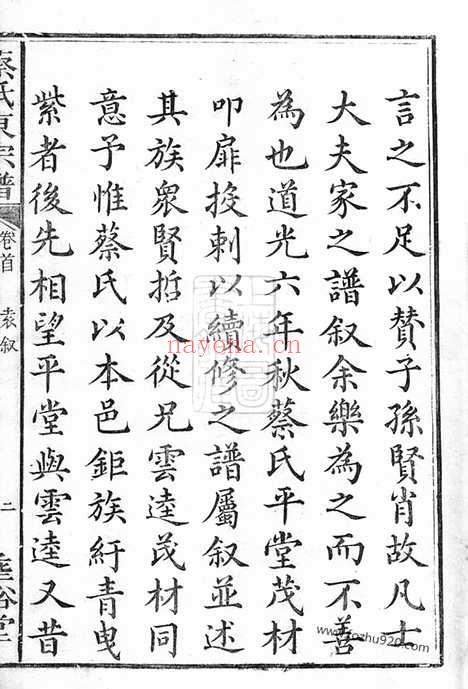 言之不足以贊子孫賢肖故凡士
大夫家之譜叙余樂為之而不善
為也道光六年秋蔡氏平堂茂材
叩扉投刺以續修之譜屬叙並述
其族衆賢哲及從兄雲逵茂材同
意予惟蔡氏以本邑鉅族紆青曳
紫者後先相望平堂與雲逵又昔
蔡氏東宗譜
卷首
袁叙
二
nayona.cn